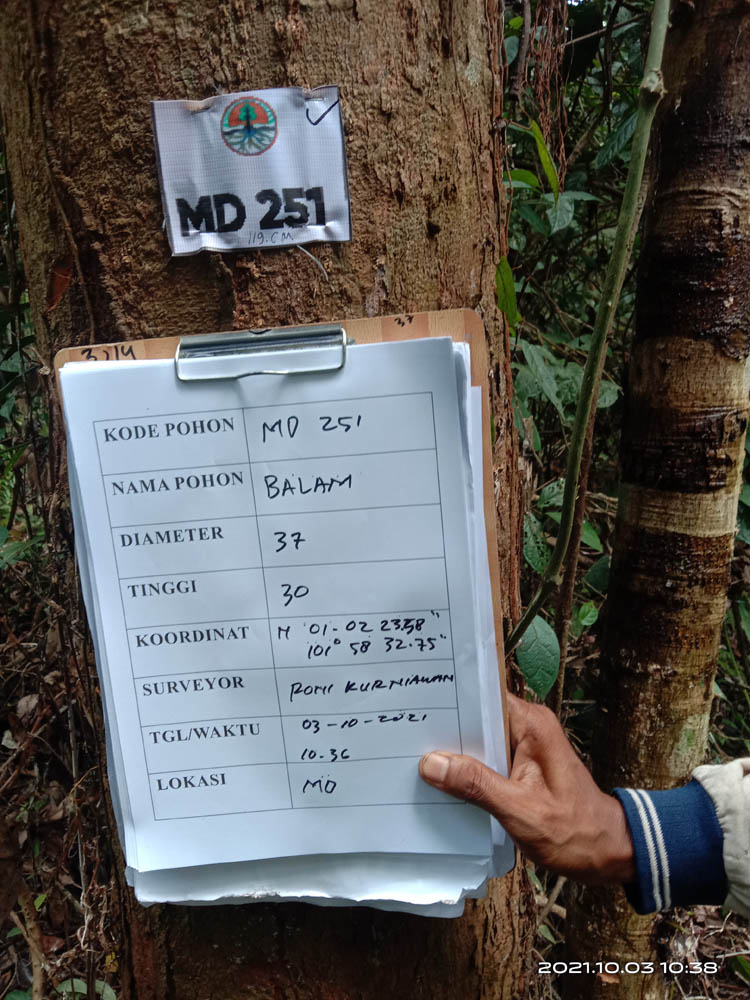 MD 251
119.CM
37
KODE POHON MD 251
NAMA POHON BALAM
DIAMETER 37
TINGGI 30
KOORDINAT N 01-02 23.58"
101° 58 32.75"
SURVEYOR RONI KURNIAWAN
TGL/WAKTU 03-10-2021
10-36
LOKASI MD
2021.10.03 10:38